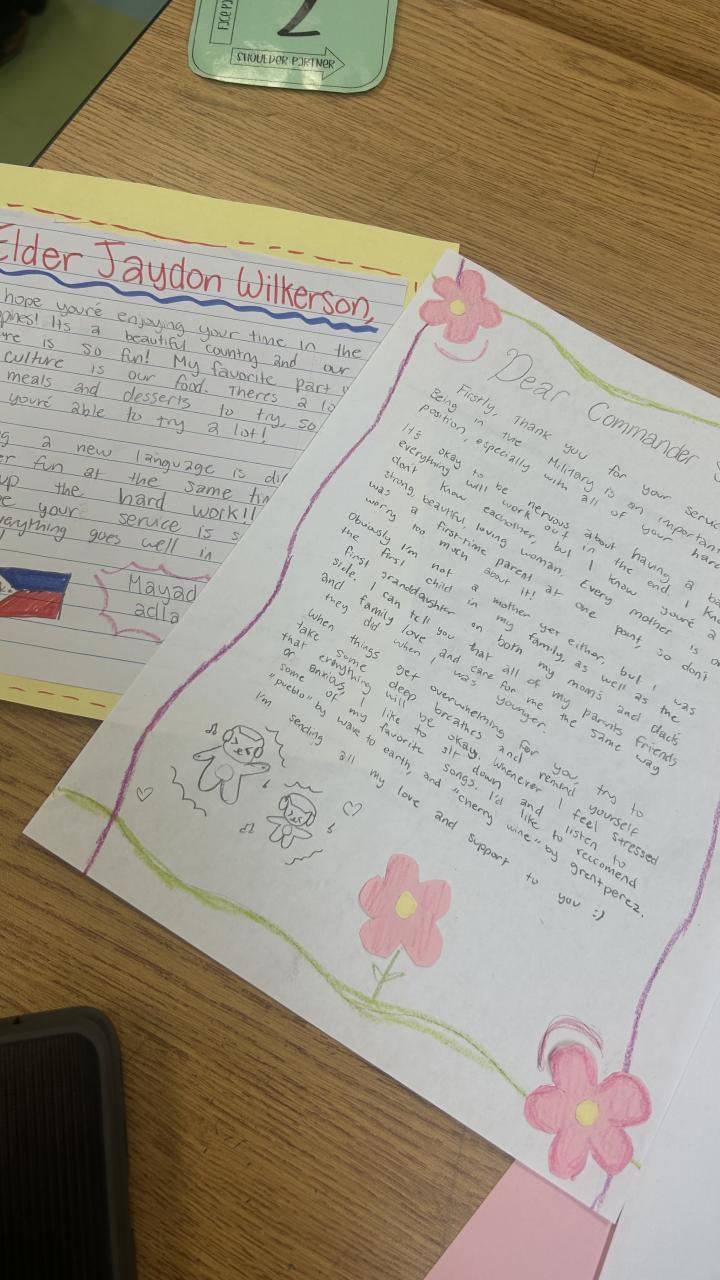 FACE PA
2
SHOULDER PARTNER
Elder Jaydon Wilkerson,
hope you're enjoying your time in the
pines! Its a beautiful country and our
re is so fun! My favorite part
culture is our food. Theres a lo
meals and desserts to try, so
you're able to try a lot!
g a new language is di
er fun at the same tim
up the hard work!!
e your service is s
verything goes well in
Mayad
adla
Dear Commander S
Firstly, Thank you for your servic
Being in the Military is an important
position, especially with all of your hard
It's okay to be nervous about having a ba
everything will work out in the end. I kno
don't know eachother, but I know you're a
strong, beautiful, loving woman. Every mother is or
was a first-time parent at one point, so don't
worry too much about it!
Obviously I'm not a mother yet either, but I was
the first child in my family, as well as the
first granddaughter on both my mom's and dad's
side. I can tell you that all of my parents friends
and family love and care for me the same way
they did when I was younger.
When things get overwhelming for you, try to
take some deep breathes and remind yourself
that everything will be okay. Whenever I feel stressed
or anxious, I like to sit down and listen to
some of my favorite songs. I'd like to reccomend
"pueblo" by wave to earth, and "cherry wine" by grentperez.
I'm sending all my love and support to you :)